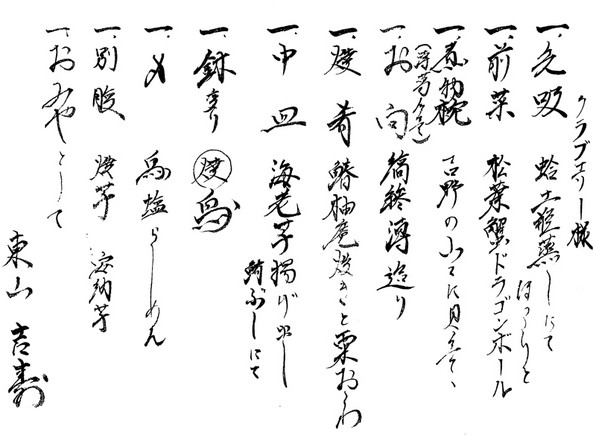 クラブエリー様
一、先吸 蛤土瓶蒸しにて
ほっこりと
一、前菜 松葉蟹ドラゴンボール
一、煮物椀 吉野の山々に見立てて、
一、お向 縞鯵薄造り
一、焼肴 鰆柚庵焼きと栗おこわ
一、中皿 海老芋揚げ出し
鮪ぶしにて
一、鉢まり 焼鳥
一、〆 鳥塩らーめん
一、別腹 焼芋 安納芋
一、おみやとして
東山 吉寿